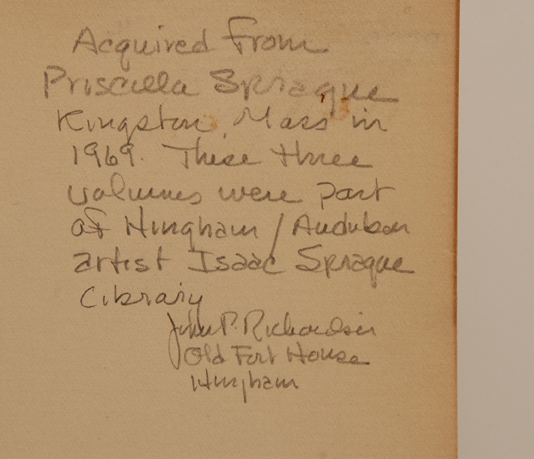 Acquired from
Priscilla Sprague
Kingston, Mass in
1969. These three
volumes were part
of Hingham / Audubon
artist Isaac Sprague
Library
John P. Richardson
Old Fort House
Hingham